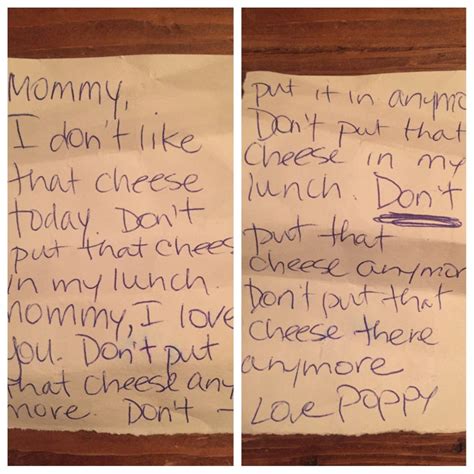 Mommy,
I don't like
that cheese
today. Don't
put that chees
in my lunch.
Mommy, I love
you. Don't put
that cheese any
more. Don't –
put it in anymo
Don't put that
Cheese in my
lunch. Don't
put that
cheese anymor
Don't put that
cheese there
anymore
Love Poppy